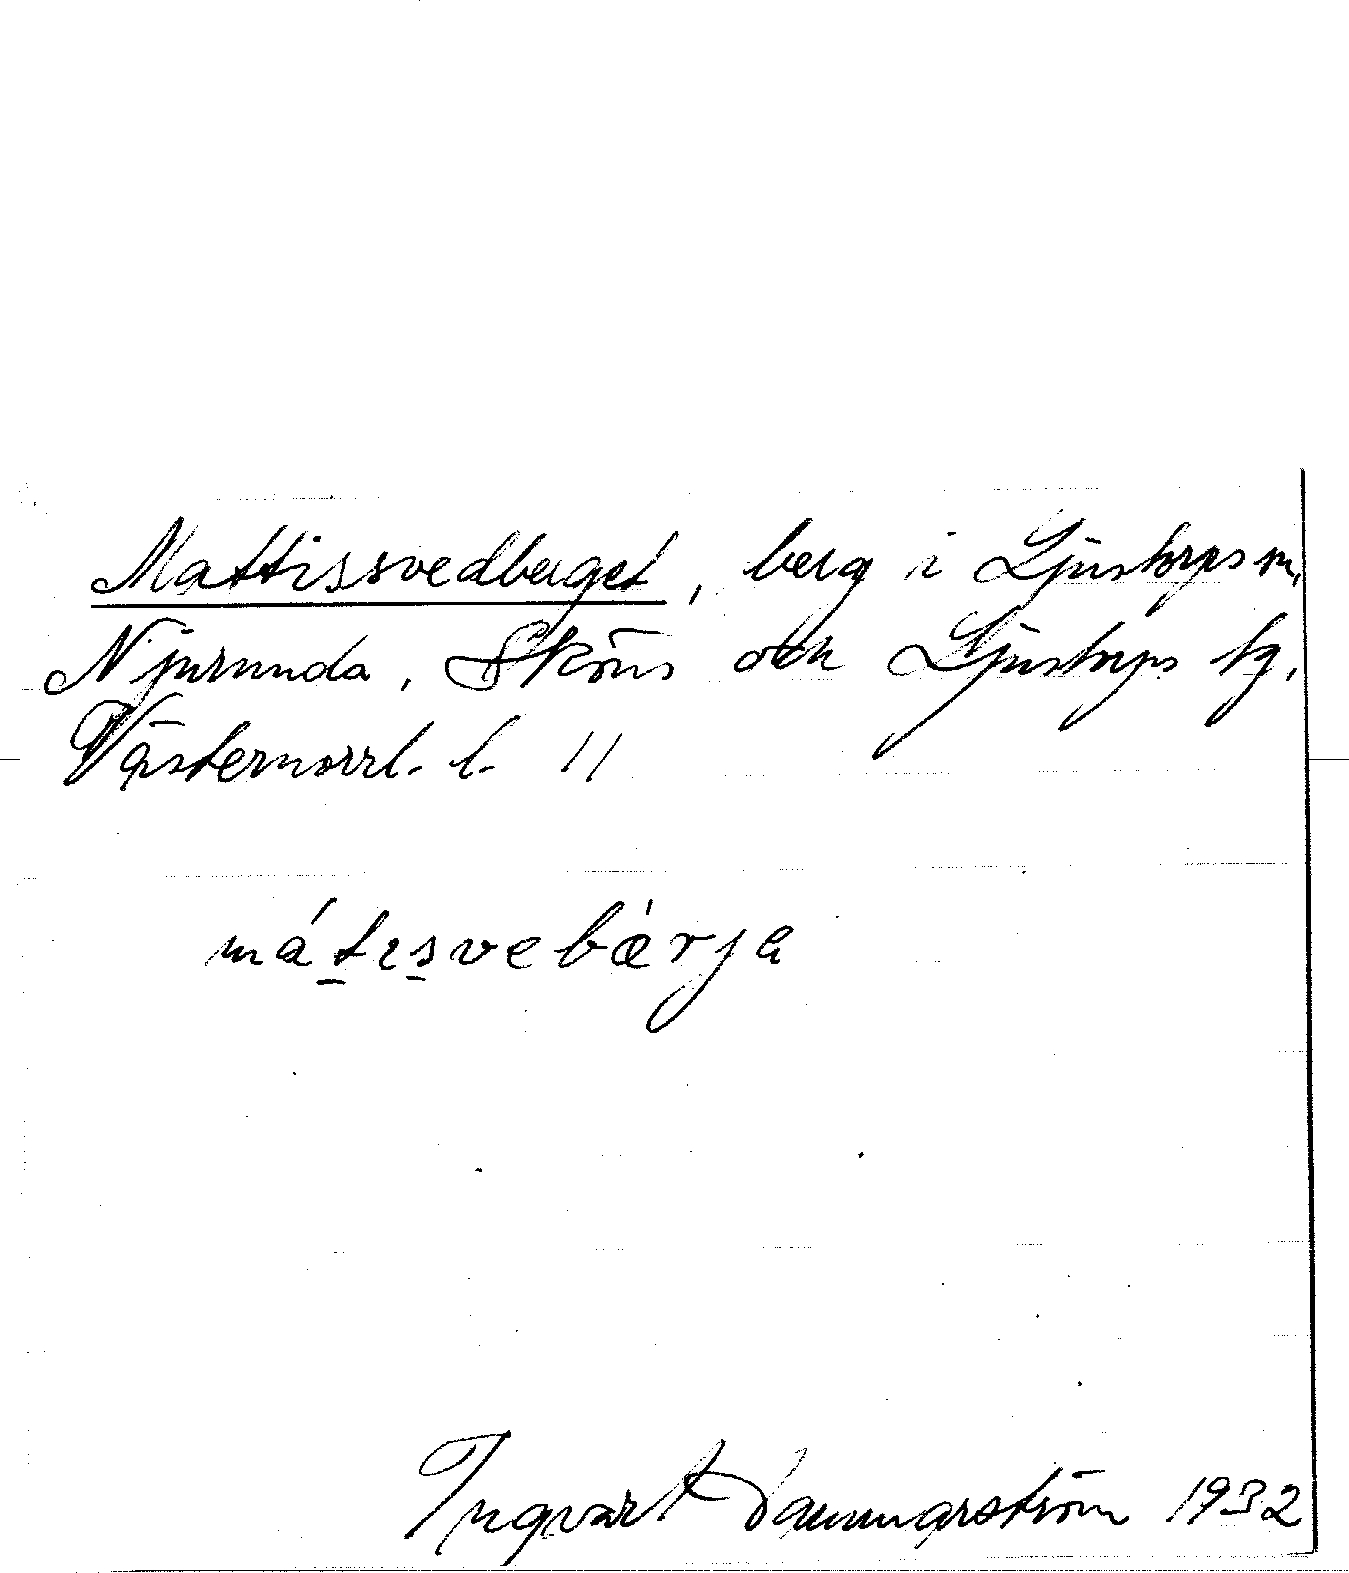 Mattissvedberget, berg i Ljustorps sn,
Njurunda, Sköns och Ljustorps tg,
Västernorrl. l. 11
mátısvebæ̀rja
Ingvart 1932